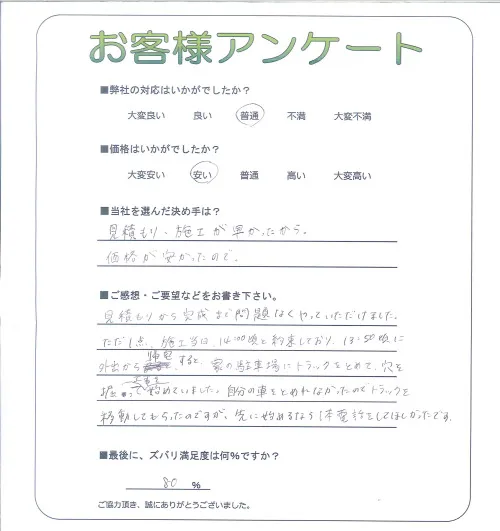 お客様アンケート
■弊社の対応はいかがでしたか？
大変良い 良い 普通 不満 大変不満
■価格はいかがでしたか？
大変安い 安い 普通 高い 大変高い
■当社を選んだ決め手は？
見積もり・施工が早かったから。
価格が安かったので。
■ご感想・ご要望などをお書き下さい。
見積もりから完成まで問題なくやっていただけました。
ただ1点、施工当日、14:00頃と約束しており、13:50頃に
外出から帰宅すると、家の駐車場にトラックをとめて、穴を
堀って作業を始めていました。自分の車をとめれなかったのでトラックを
移動してもらったのですが、先に始めるなら一本電話をしてほしかったです。
■最後に、ズバリ満足度は何%ですか？
80 %
ご協力頂き、誠にありがとうございました。